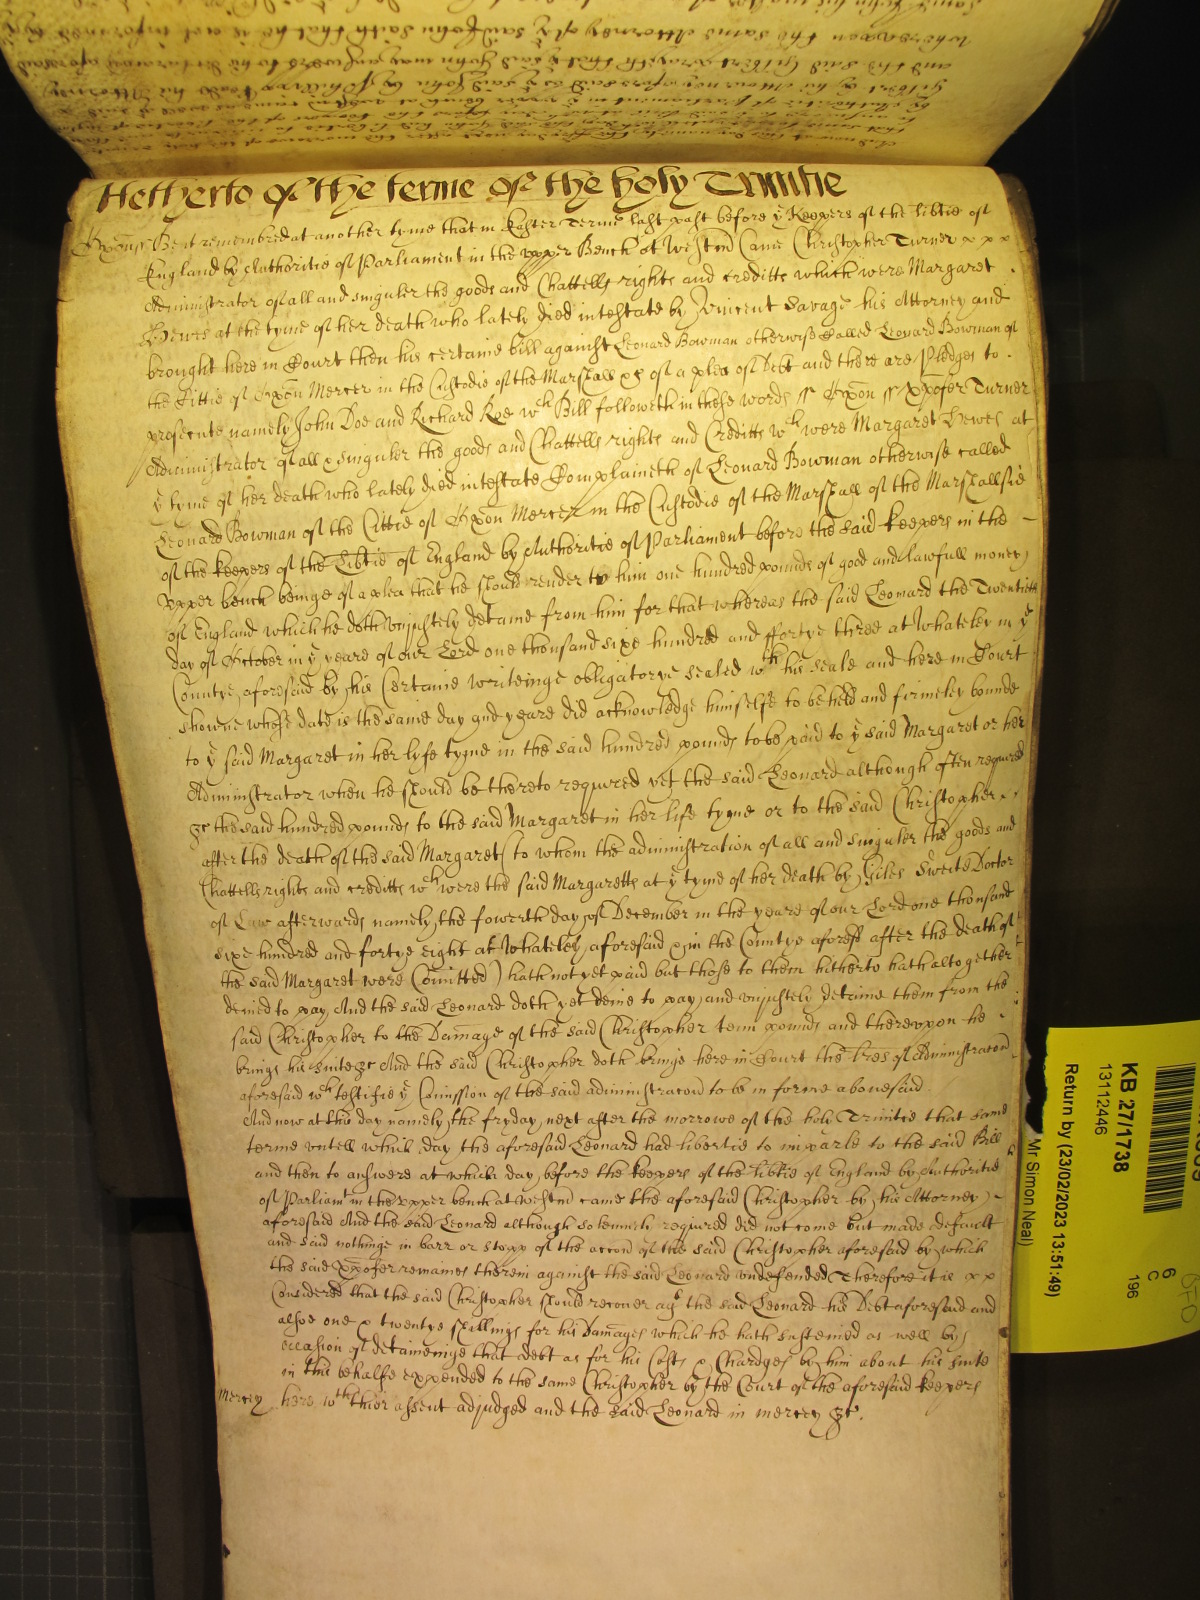 Hetherto of the terme of the holy Trinitie
Oxon ss Be it remembred at another tyme that in Easter Terme last past before ye Keepers of the libtie of
England by Authoritie of Parliament in the vpper Bench at Westmr Came Christopher Turner x x x
Administrator of all and singuler the goods and Chattells rights and creditts which were Margaret
Hewes at the tyme of her death who lately died intestate by Vincent Savage his Attorney and
brought here in Court then his certaine bill against Leonard Bowman otherwise called Leonard Bowman of
the Cittie of Oxon Mercer in the Custodie of the Marshall &c of a plea of Debt and there are Pledges to
prosecute namely John Doe and Richard Roe wch Bill followeth in these words ss Oxon ss Xpofer Turner
Administrator of all & singuler the goods and Chattells rights and Creditts wch were Margaret Hewes at
ye tyme of her death who lately died intestate Complaineth of Leonard Bowman otherwise called
Leonard Bowman of the Cittie of Oxon Mercer in the Custodie of the Marshall of the Marshallsie
of the keepers of the Libtie of England by Authoritie of Parliament before the said keepers in the
vpper bench beinge of a plea that he should render to him one hundred pounds of good and lawfull money
of England which he doth vniustely detaine from him for that whereas the said Leonard the Twentieth
day of October in ye yeare of our Lord one thousand sixe hundred and ffortye three at Whateley in ye
Countye aforesaid by his Certaine writeinge obligatorye sealed wth his seale and here in Court
showne whose date is the same day and yeare did acknowledge himselfe to be held and firmeley bounde
to ye said Margaret in her lyfe tyme in the said hundred pounds to be paid to ye said Margaret or her
Administrator when he should be thereto required yet the said Leonard although often required
&c the said hundred pounds to the said Margaret in her life tyme or to the said Christopher
after the death of the said Margaret (to whom the administration of all and singuler the goods and
Chattells rights and creditts wch were the said Margaretts at ye tyme of her death by Giles Sweite Doctor
of Law afterwards namely the fowerth day of December in the yeare of our Lord one thousand
sixe hundred and fortye eight at Whateley aforesaid in the Countye aforesd after the death of
the said Margaret were Comitted) hath not yet paid but those to them hitherto hath altogether
denied to pay And the said Leonard doth yet denie to pay and vniustely detaine them from the
said Christopher to the Damage of the said Christopher tenn pounds and therevpon he
brings his suite &c And the said Christopher doth bringe here in Court the lres of Administracon
aforesaid wch testifie ye Comission of the said administracon to be in forme abouesaid
And now at this day namely the fryday next after the morrowe of the holy Trinitie that same
terme vntell which day the aforesaid Leonard had libertie to imparle to the said Bill
and then to answere at which day before the keepers of the libtie of England by Authoritie
of Parliamt in the vpper bench at Westmr came the aforesaid Christopher by his Attorney
aforesaid And the said Leonard although solemnly required did not come but made default
and said nothinge in barr or stopp of the accon of the said Christopher aforesaid by which
the said Xpofer remaines therein against the said Leonard vndefended Therefore it is x x
Considered that the said Christopher should recouer agt the said Leonard his Debt aforesaid and
alsoe one & twentye shillings for his Damages which he hath susteined as well by
occasion of detaineinge that debt as for his Costs & Chardges by him about his suite
in this behalfe expended to the same Christopher by the Court of the aforesaid keepers
mercey here wth thier assent adjudged and the said Leonard in mercey &c.
KB 27/1738
13112446
Return by (23/02/2023 13:51:49)
Mr Simon Neal)
6
C
196